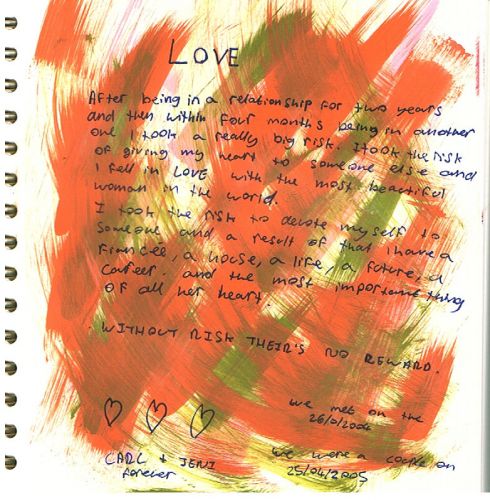 LOVE
After being in a relationship for two years
and then within four months being in another
one I took a really big risk. I took the risk
of giving my heart to someone else and
I fell in LOVE with the most beautiful
woman in the world.
I took the risk to devote myself to
someone and a result of that i have a
Fiancee, a house, a life, a future, a
career. and the most important thing
of all her heart.
. WITHOUT RISK THEIR'S NO REWARD.
We met on the
CARL + JENI
forever
we were a couple on
25/04/2005